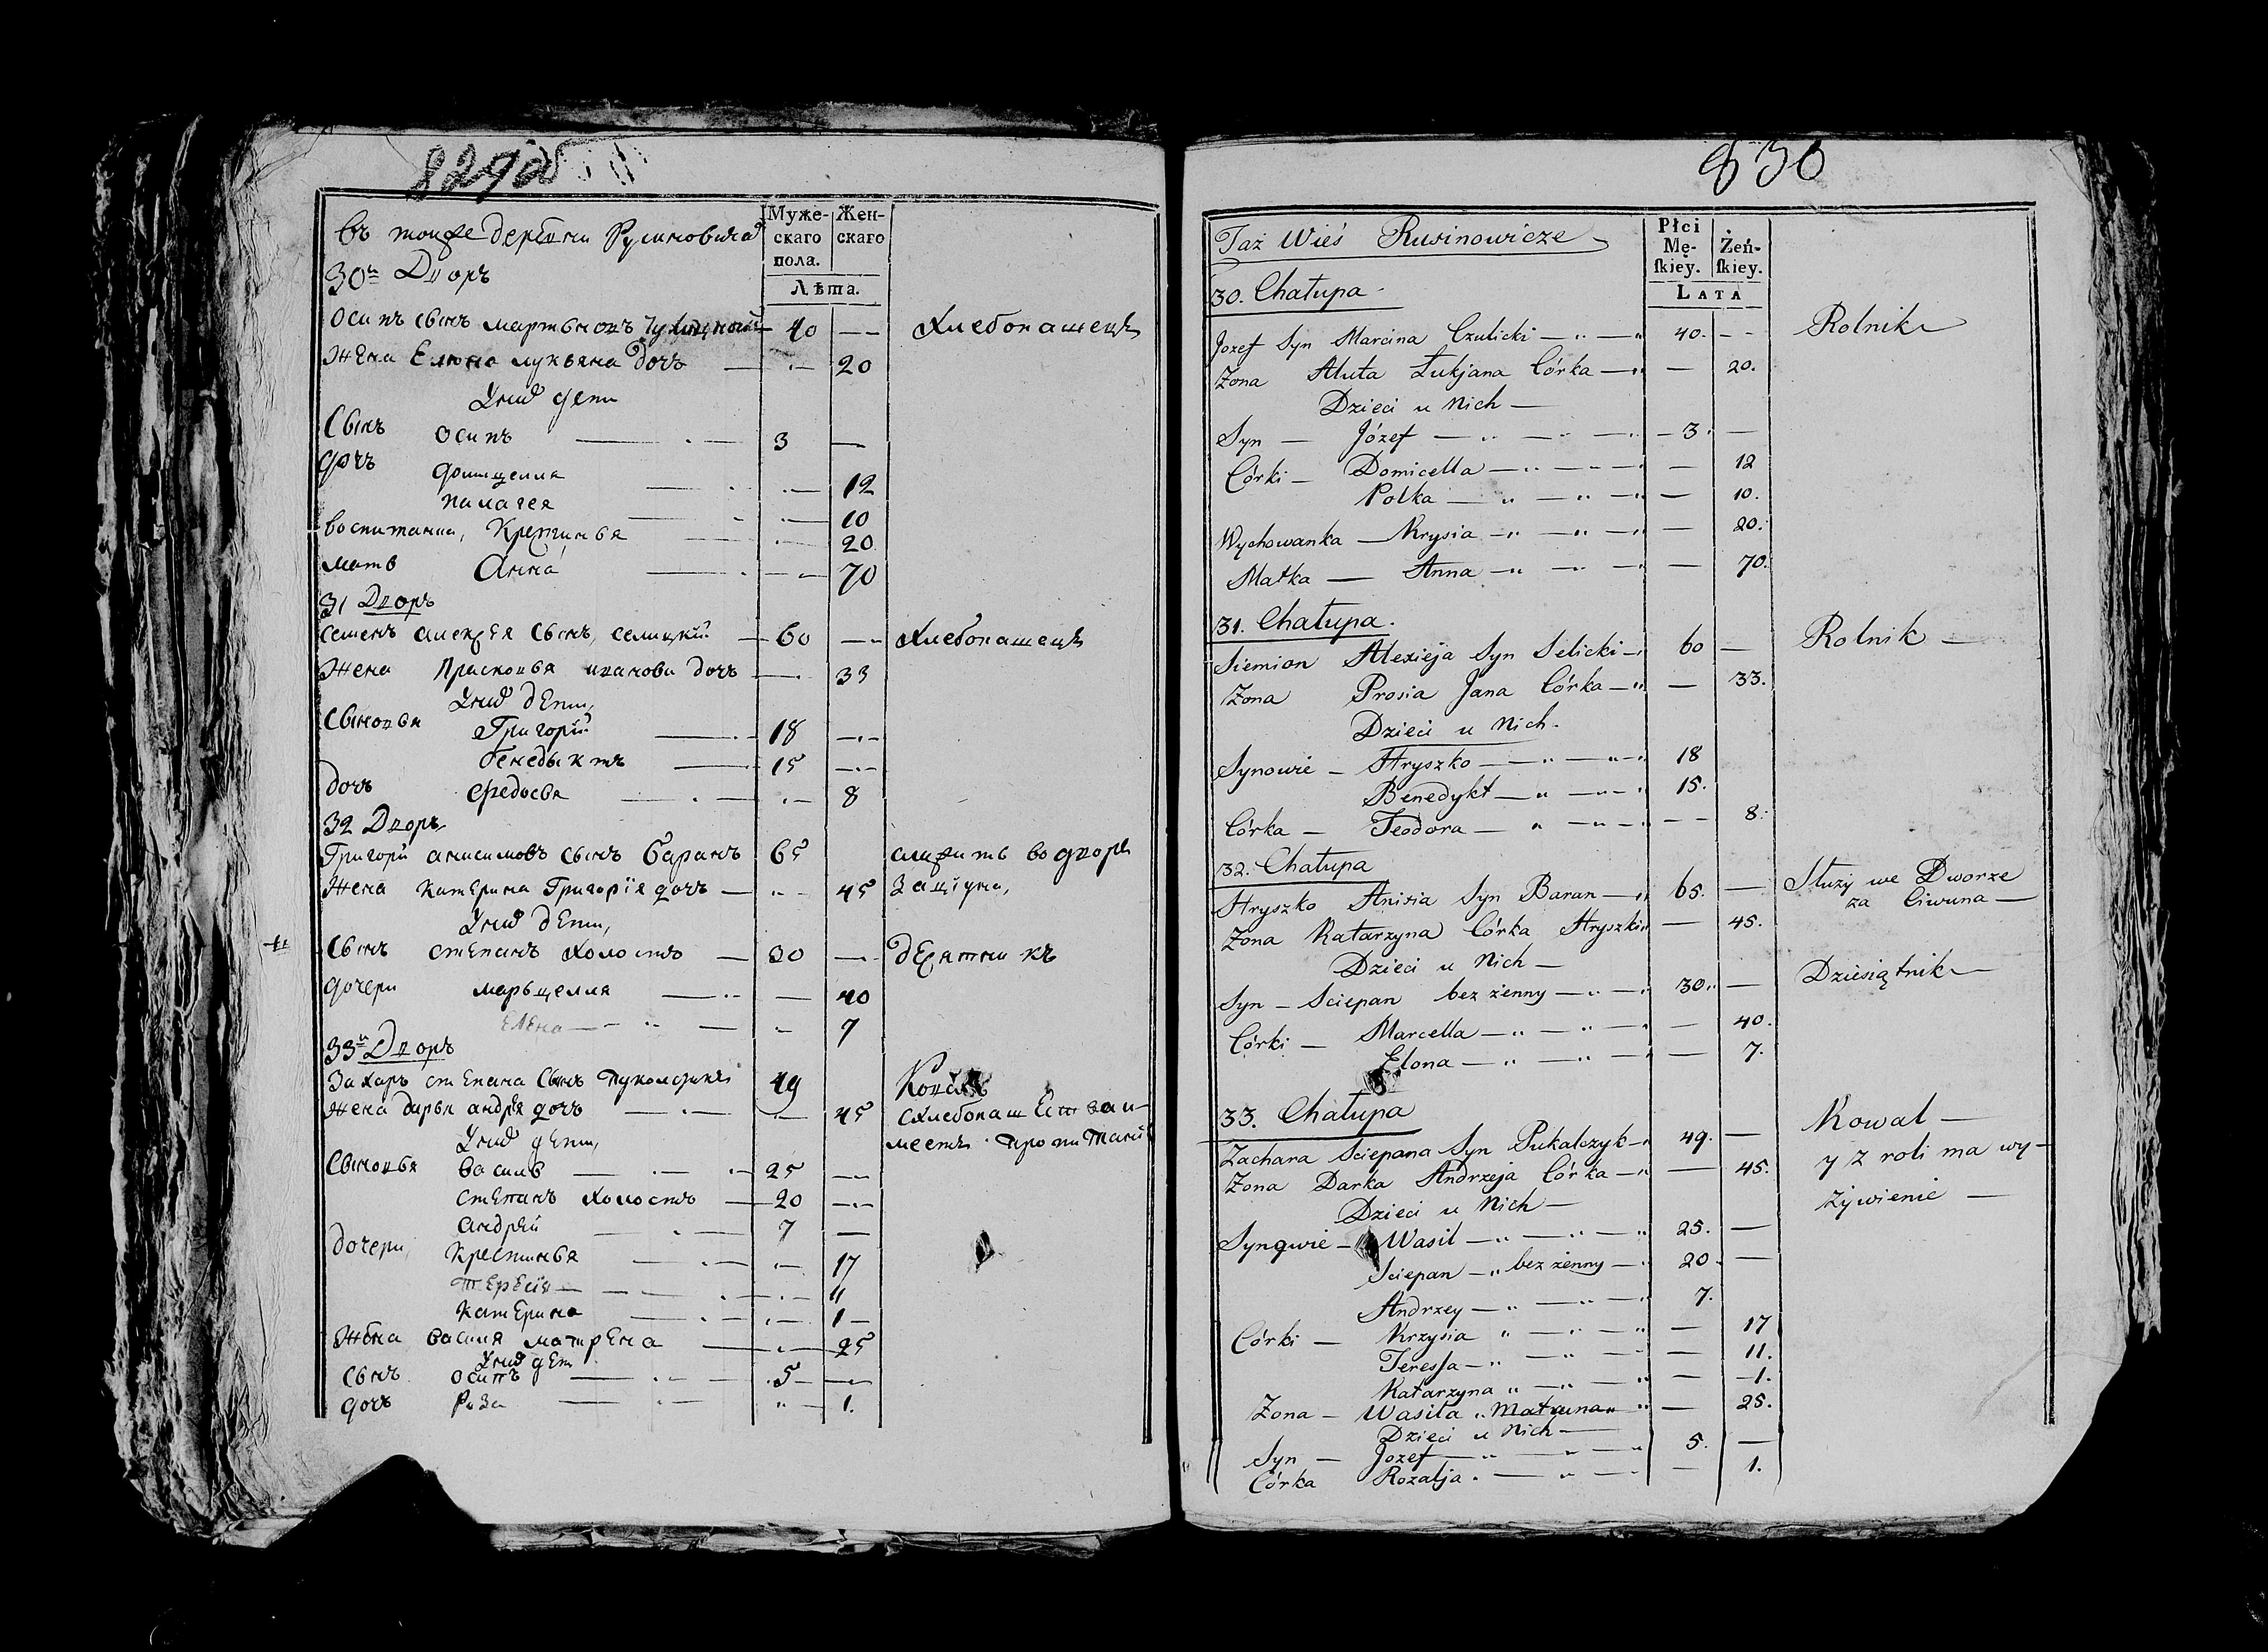 829об
въ тойже деревни Русиновичах
Муже-
скаго
пола.
Жен-
скаго
Лѣта.
30й Дворъ
Осипъ сынъ мартыновъ 40 — Хлебопашецъ
Жена Елюта лукьяна дочъ — 20
Уних дети
Сынъ Осипъ — 3 —
дочъ домицелля — 12
палагея — 10
воспитанка, Крестинья — 20
мать Анна — 70
31 Дворъ
семенъ алексея сынъ, селицкий — 60 — Хлебопашецъ
Жена Прасковья иванова дочъ — 33
Уних дети,
Сыновья Григорий — 18 —
бенедыктъ — 15 —
дочъ Федосья — 8
32 Дворъ
Григори анисимовъ сынъ баранъ 65 служитъ во дворе
Жена катерина Григорія дочъ — 45 за цівуна,
Уних дети,
Сынъ степанъ холостъ — 30 — десятникъ
дочери марьцелля — 40
Елена — 7
33й Дворъ
Захаръ степана сынъ 49 Коваль
Жена дарья андрея дочъ — 45 схлебопашества и-
Уних дети, меетъ пропитаний
Сыновья василь — 25 —
степанъ холостъ — 20 —
андрей — 7 —
дочери, крестинья — 17
тересія — 11
катерина — 1 —
Жена василя матрена — 25
Уних дет
сынъ осипъ — 5 —
дочъ Роза — 1.
830
Taż Wieś Rusinowicze
Płci
Mę-
ſkiey.
Żeń-
ſkiey.
LATA
30. Chałupa
Jozef Syn Marcina Czulicki — 40. — Rolnik
Zona Aluta Łukjana Córka — 20.
Dzieci u Nich —
Syn — Józef — 3. —
Córki — Domicella — 12
Polka — 10.
Wychowanka — Krysia — 20.
Matka — Anna — 70.
31. Chałupa.
Siemion Alexieja Syn Selicki — 60 — Rolnik —
Zona Prosia Jana Córka — 33.
Dzieci u Nich.
Synowie — Hryszko — 18
Benedykt — 15.
Córka — Teodora — 8.
32. Chałupa
Hryszko Anisia Syn Baran — 65. — Służy we Dworze
za Ciwuna —
Zona Katarzyna Córka Hryszki — 45.
Dzieci u Nich —
Syn — Sciepan bez żenny — 30. — Dziesiątnik
Córki — Marcella — 40.
Elona — 7.
33. Chałupa
Zachara Sciepana Syn Pukalczyk — 49. — Kowal —
Zona Darka Andrzeja Córka — 45. y z roli ma wy-
Dzieci u Nich — żywienie —
Synowie — Wasil — 25. —
Sciepan — bez żenny — 20 —
Andrzey — 7.
Córki — Krzysia — 17
Teressa — 11.
Katarzyna — 1.
Zona — Wasila Matruna — 25.
Dzieci u Nich —
Syn — Jozef — 5. —
Córka Rozalja — 1.